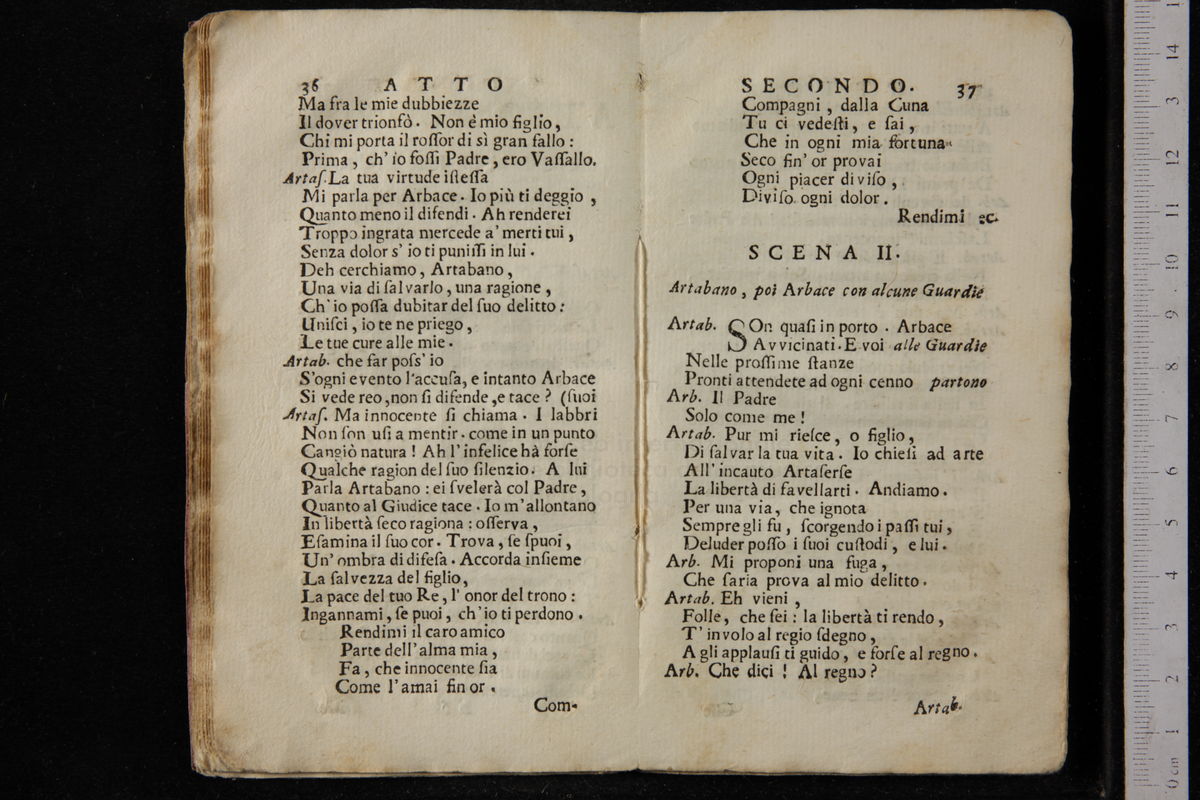 36 ATTO
Ma fra le mie dubbiezze
Il dover trionfò. Non è mio figlio,
Chi mi porta il roſſor di sì gran fallo:
Prima, ch' io foſſi Padre, ero Vaſſallo.
Artaſ. La tua virtude iſteſſa
Mi parla per Arbace. Io più ti deggio,
Quanto meno il difendi. Ah renderei
Troppo ingrata mercede a' merti tui,
Senza dolor s' io ti puniſſi in lui.
Deh cerchiamo, Artabano,
Una via di ſalvarlo, una ragione,
Ch' io poſſa dubitar del ſuo delitto:
Uniſci, io te ne priego,
Le tue cure alle mie.
Artab. che far poſs' io
S'ogni evento l'accuſa, e intanto Arbace
Si vede reo, non ſi difende, e tace? (ſuoi
Artaſ. Ma innocente ſi chiama. I labbri
Non ſon uſi a mentir. come in un punto
Cangiò natura! Ah l' infelice hà forſe
Qualche ragion del ſuo ſilenzio. A lui
Parla Artabano: ei ſvelerà col Padre,
Quanto al Giudice tace. Io m'allontano
In libertà ſeco ragiona: oſſerva,
Eſamina il ſuo cor. Trova, ſe ſpuoi,
Un' ombra di difeſa. Accorda inſieme
La ſalvezza del figlio,
La pace del tuo Re, l' onor del trono:
Ingannami, ſe puoi, ch' io ti perdono.
Rendimi il caro amico
Parte dell' alma mia,
Fa, che innocente ſia
Come l' amai fin or.
Com-
SECONDO. 37
Compagni, dalla Cuna
Tu ci vedeſti, e ſai,
Che in ogni mia fortuna
Seco fin' or provai
Ogni piacer diviſo,
Diviſo ogni dolor.
Rendimi &c.
SCENA II.
Artabano, poi Arbace con alcune Guardie
Artab. SOn quaſi in porto. Arbace
Avvicinati. E voi alle Guardie
Nelle proſſime ſtanze
Pronti attendete ad ogni cenno partono
Arb. Il Padre
Solo come me!
Artab. Pur mi rieſce, o figlio,
Di ſalvar la tua vita. Io chieſi ad arte
All' incauto Artaſerſe
La libertà di favellarti. Andiamo.
Per una via, che ignota
Sempre gli fu, ſcorgendo i paſſi tui,
Deluder poſſo i ſuoi cuſtodi, e lui.
Arb. Mi proponi una fuga,
Che ſaria prova al mio delitto.
Artab. Eh vieni,
Folle, che ſei: la libertà ti rendo,
T' involo al regio ſdegno,
A gli applauſi ti guido, e forſe al regno.
Arb. Che dici! Al regno?
Artab.